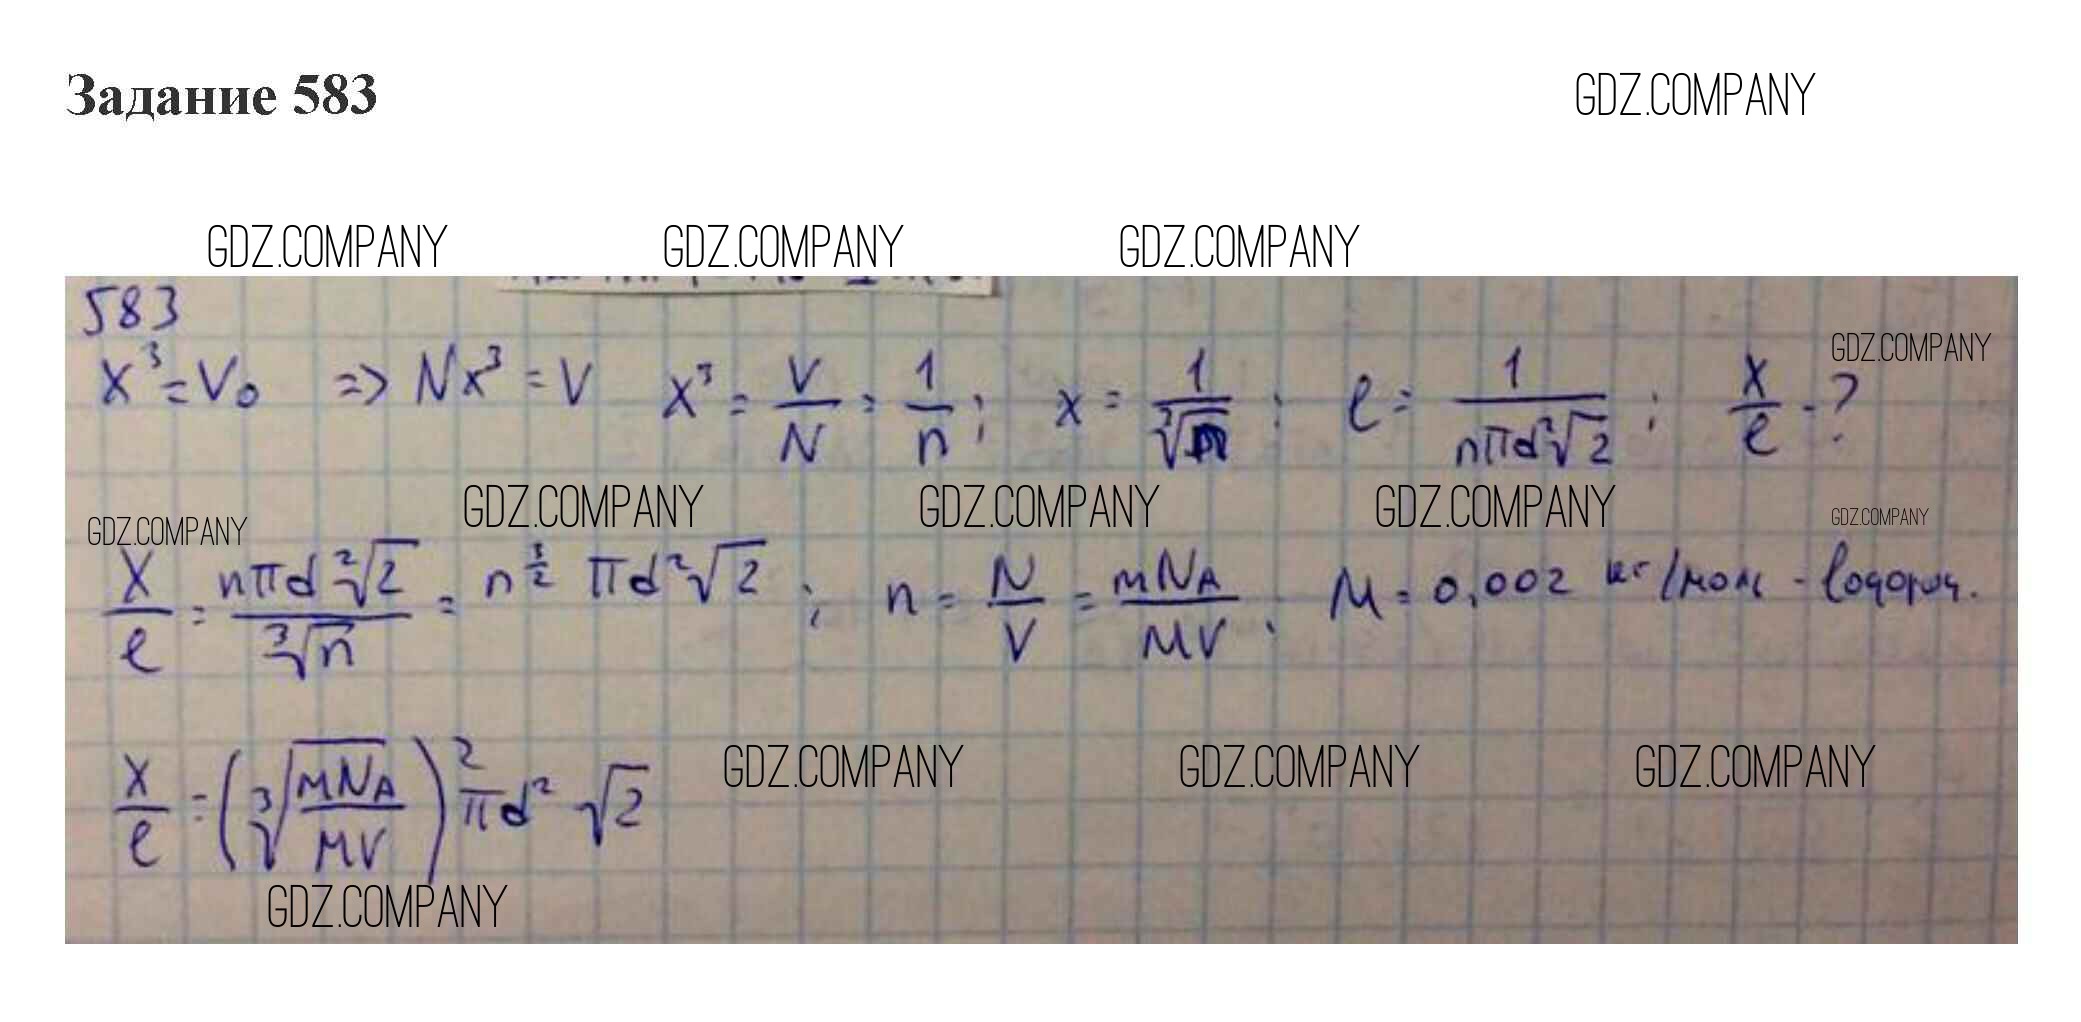 Задание 583
GDZ.COMPANY
GDZ.COMPANY GDZ.COMPANY GDZ.COMPANY
583
x³ = V₀ => Nx³ = V x³ = V/N = 1/n ; x = 1/∛n ; l = 1/(nπd²√2) ; x/l - ?
GDZ.COMPANY
GDZ.COMPANY GDZ.COMPANY GDZ.COMPANY GDZ.COMPANY
GDZ.COMPANY
x/l = nπd²√2/∛n = n^(3/2) πd²√2 ; n = N/V = mN_A/MV ; M = 0,002 кг/моль - водород.
x/l = (∛(mN_A/MV))² πd² √2
GDZ.COMPANY GDZ.COMPANY GDZ.COMPANY
GDZ.COMPANY